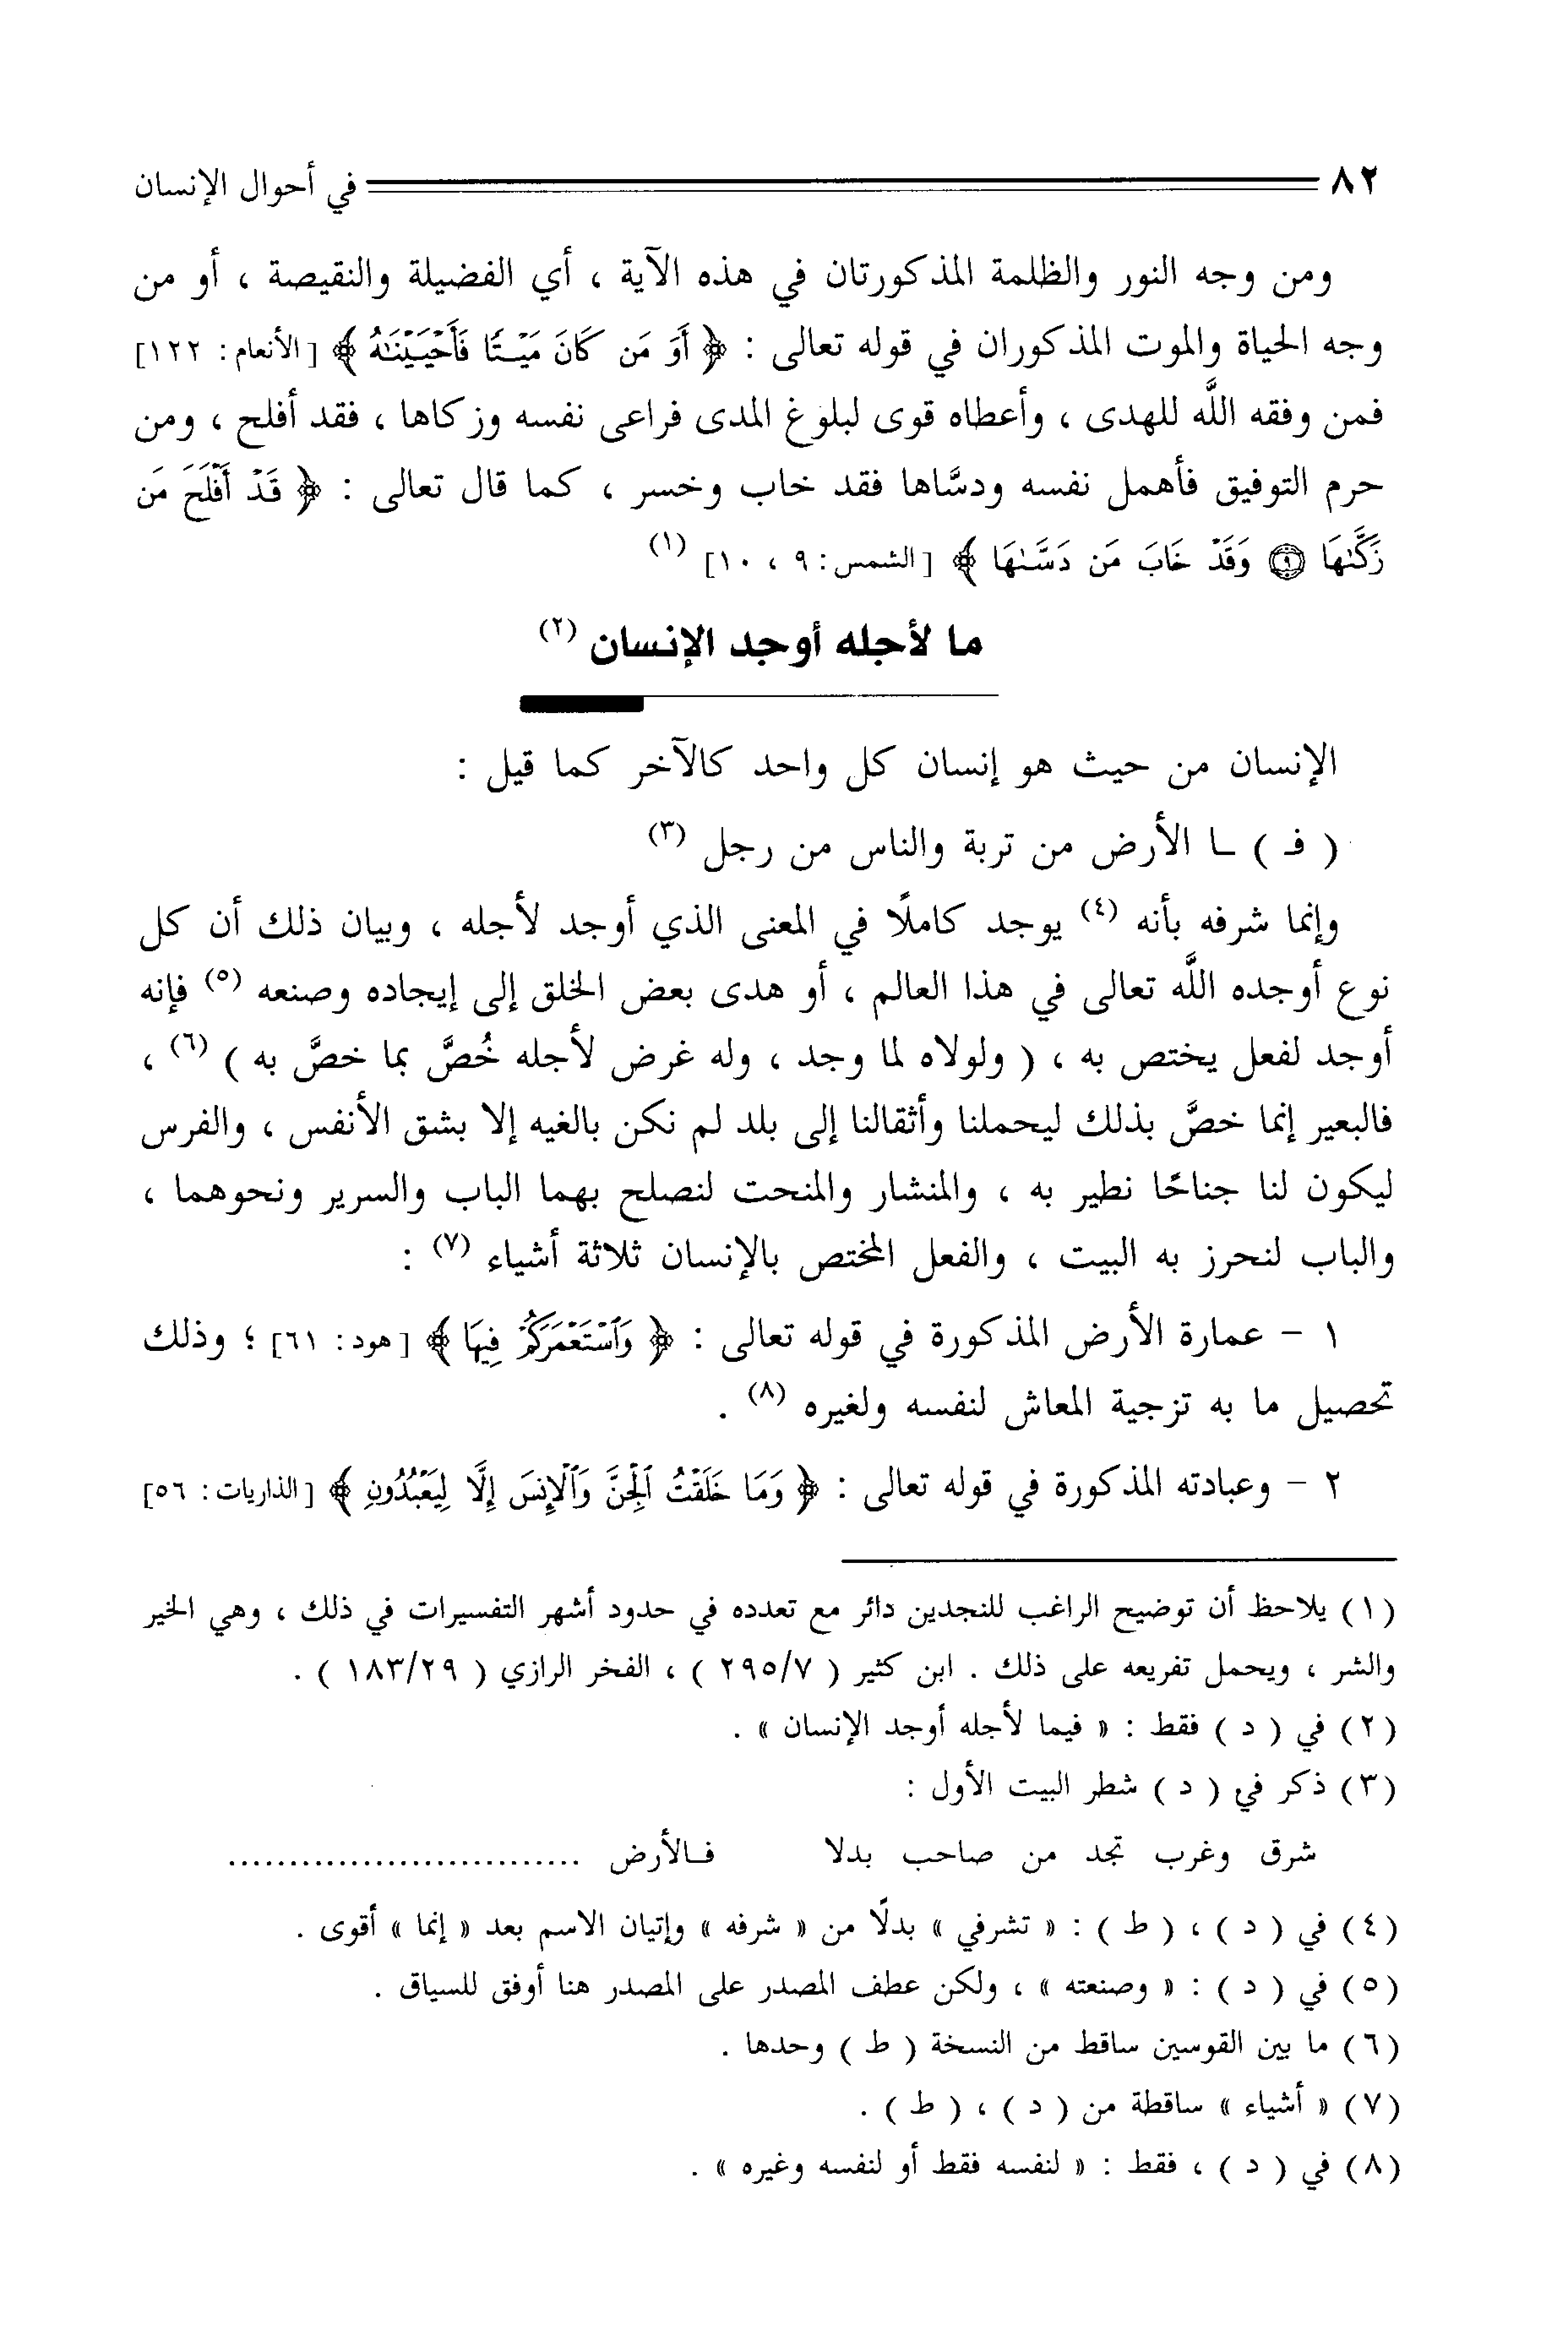 ٨٢ في أحوال الإنسان
ومن وجه النور والظلمة المذكورتان في هذه الآية ، أي الفضيلة والنقيصة ، أو من
وجه الحياة والموت المذكوران في قوله تعالى : ﴿ أَوَ مَن كَانَ مَيْتًا فَأَحْيَيْنَٰهُ ﴾ [الأنعام: ١٢٢]
فمن وفقه اللَّه للهدى ، وأعطاه قوى لبلوغ المدى فراعى نفسه وزكاها ، فقد أفلح ، ومن
حرم التوفيق فأهمل نفسه ودسَّاها فقد خاب وخسر ، كما قال تعالى : ﴿ قَدْ أَفْلَحَ مَن
زَكَّىٰهَا ۝٩ وَقَدْ خَابَ مَن دَسَّىٰهَا ﴾ [الشمس: ٩ ، ١٠] (١)
ما لأجله أوجد الإنسان (٢)
الإنسان من حيث هو إنسان كل واحد كالآخر كما قيل :
( فـ ) ـا الأرض من تربة والناس من رجل (٣)
وإنما شرفه بأنه (٤) يوجد كاملًا في المعنى الذي أوجد لأجله ، وبيان ذلك أن كل
نوع أوجده اللَّه تعالى في هذا العالم ، أو هدى بعض الخلق إلى إيجاده وصنعه (٥) فإنه
أوجد لفعل يختص به ، ( ولولاه لما وجد ، وله غرض لأجله خُصَّ بما خصَّ به ) (٦) ،
فالبعير إنما خصَّ بذلك ليحملنا وأثقالنا إلى بلد لم نكن بالغيه إلا بشق الأنفس ، والفرس
ليكون لنا جناحًا نطير به ، والمنشار والمنحت لنصلح بهما الباب والسرير ونحوهما ،
والباب لنحرز به البيت ، والفعل المختص بالإنسان ثلاثة أشياء (٧) :
١ - عمارة الأرض المذكورة في قوله تعالى : ﴿ وَٱسْتَعْمَرَكُمْ فِيهَا ﴾ [هود: ٦١] ؛ وذلك
تحصيل ما به تزجية المعاش لنفسه ولغيره (٨) .
٢ - وعبادته المذكورة في قوله تعالى : ﴿ وَمَا خَلَقْتُ ٱلْجِنَّ وَٱلْإِنسَ إِلَّا لِيَعْبُدُونِ ﴾ [الذاريات: ٥٦]
(١) يلاحظ أن توضيح الراغب للنجدين دائر مع تعدده في حدود أشهر التفسيرات في ذلك ، وهي الخير
والشر ، ويحمل تفريعه على ذلك . ابن كثير ( ٢٩٥/٧ ) ، الفخر الرازي ( ١٨٣/٢٩ ) .
(٢) في ( د ) فقط : « فيما لأجله أوجد الإنسان » .
(٣) ذكر في ( د ) شطر البيت الأول :
شرق وغرب تجد من صاحب بدلا فـالأرض .............................
(٤) في ( د ) ، ( ط ) : « تشرفي » بدلًا من « شرفه » وإتيان الاسم بعد « إنما » أقوى .
(٥) في ( د ) : « وصنعته » ، ولكن عطف المصدر على المصدر هنا أوفق للسياق .
(٦) ما بين القوسين ساقط من النسخة ( ط ) وحدها .
(٧) « أشياء » ساقطة من ( د ) ، ( ط ) .
(٨) في ( د ) ، فقط : « لنفسه فقط أو لنفسه وغيره » .